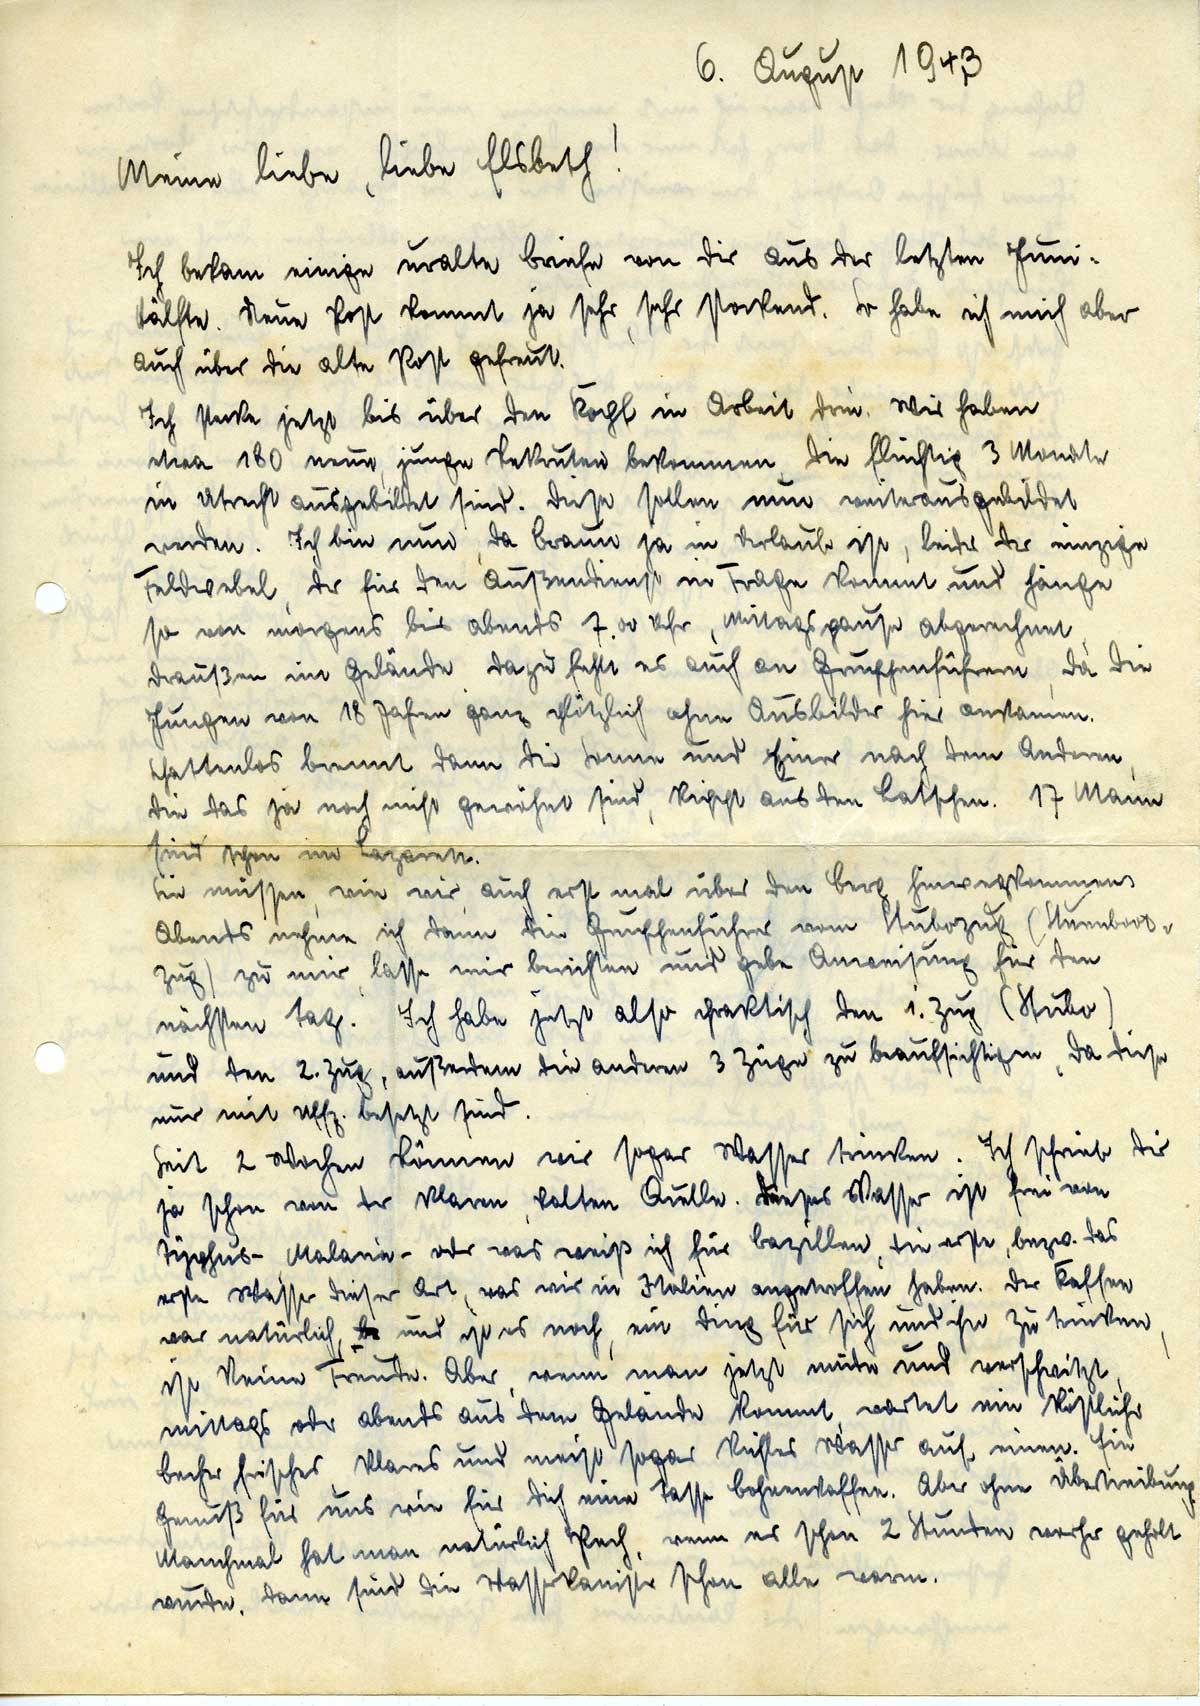 6. August 1943
Meine liebe, liebe Elsbeth!
Ich bekam einige uralte Briefe von Dir aus der letzten Juni-
hälfte. Neue Post kommt ja sehr, sehr stockend. So habe ich mich aber
auch über die alte Post gefreut.
Ich stecke jetzt bis über den Kopf in Arbeit drin. Wir haben
etwa 180 neue, junge Rekruten bekommen, die flüchtig 3 Monate
in Utrecht ausgebildet sind. Diese sollen nun weiterausgebildet
werden. Ich bin nun, da Braun ja in Urlaub ist, leider der einzige
Feldwebel, der für den Außendienst in Frage kommt und hänge
so von morgens bis abends 7.00 Uhr, Mittagspause abgerechnet,
draußen im Gelände. Dazu fehlt es auch an Gruppenführern, da die
Jungen von 18 Jahren ganz plötzlich ohne Ausbilder hier ankamen.
Schattenlos brennt dann die Sonne und Einer nach dem Anderen,
die das ja noch nicht gewöhnt sind, kippt aus den Latschen. 17 Mann
sind schon im Lazarett.
Sie müssen, wie wir, auch erst mal über den Berg hinwegkommen.
Abends nehme ich dann die Gruppenführer vom Stubozug (Sturmboot-
zug) zu mir, lasse mir berichten und gebe Anweisung für den
nächsten Tag. Ich habe jetzt also praktisch den 1. Zug (Stubo)
und den 2. Zug, außerdem die anderen 3 Züge zu beaufsichtigen, da diese
nur mit Uffz. besetzt sind.
Seit 2 Wochen können wir sogar Wasser trinken. Ich schrieb Dir
ja schon von der klaren, kalten Quelle. Dieses Wasser ist frei von
Typhus- Malaria- oder was weiß ich für Bazillen, die erste, bezw. das
erste Wasser dieser Art, was wir in Italien angetroffen haben. Der Kaffee
war natürlich, und ist es noch, ein Ding für sich und ihn zu trinken,
ist keine Freude. Aber, wenn man jetzt müde und verschwitzt,
mittags oder abends aus dem Gelände kommt, wartet ein köstlicher
Becher frisches, klares und meist sogar kühles Wasser auf einen. Ein
Genuß für uns wie für Dich eine Tasse Bohnenkaffee. Aber ohne Übertreibung.
Manchmal hat man natürlich Pech, wenn er schon 2 Stunden vorher geholt
wurde. Dann sind die Wasserkanister schon alle warm.